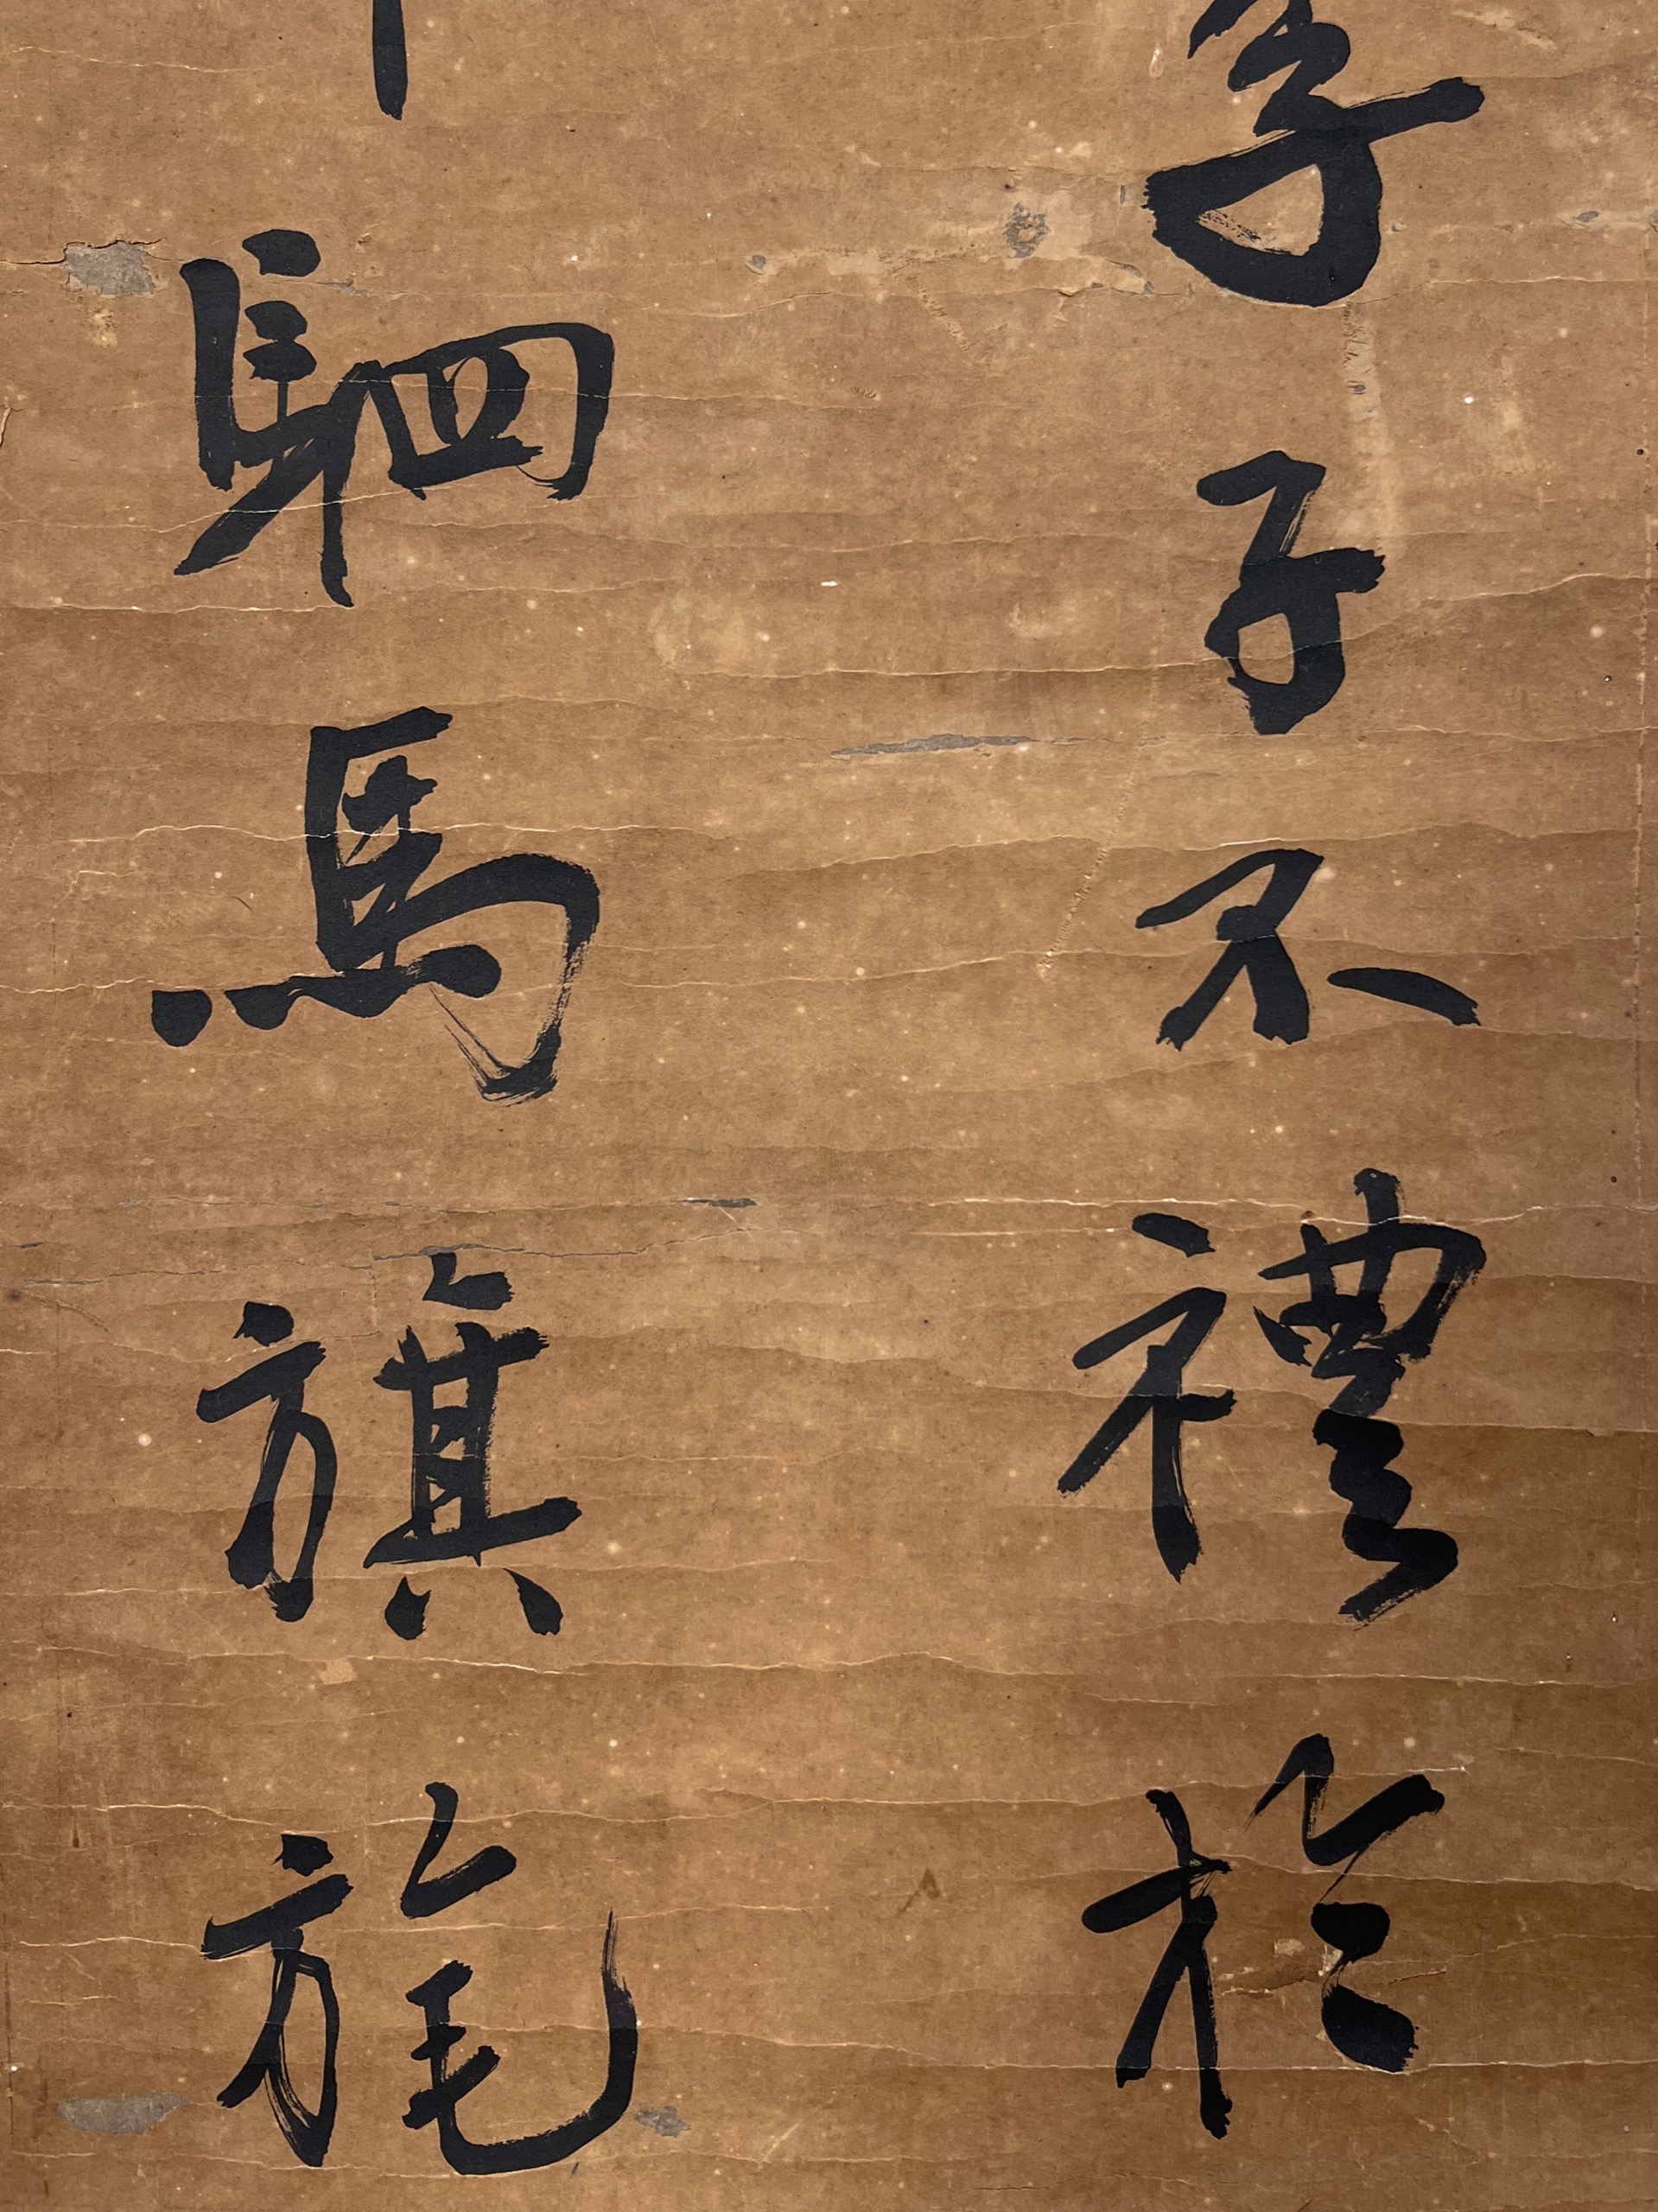 季子不禮於
駟馬旗旄